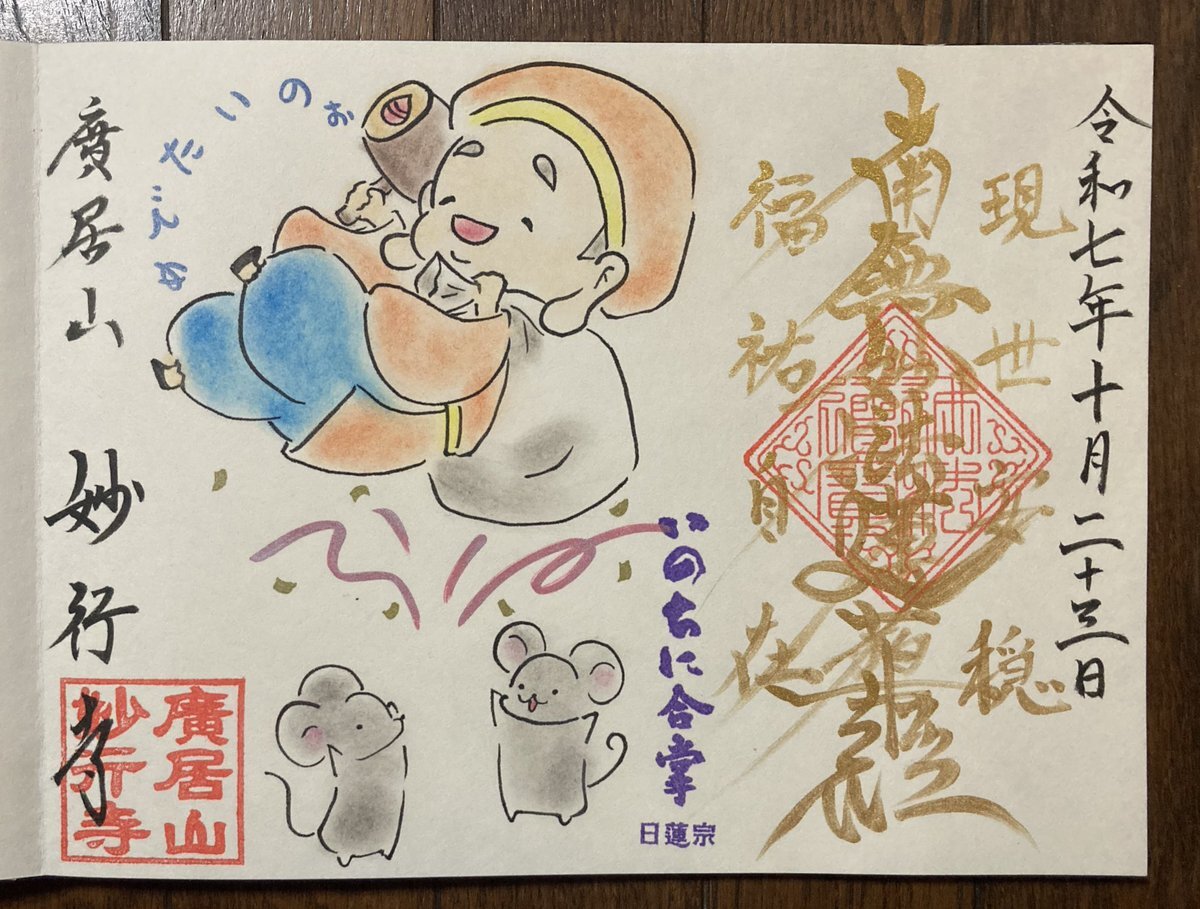 令和七年十月二十三日
現世安穏
南無妙法蓮華經
福祐自在
いのちに合掌
日蓮宗
めでたいのぉ
廣居山 妙行寺
廣居山
妙行寺